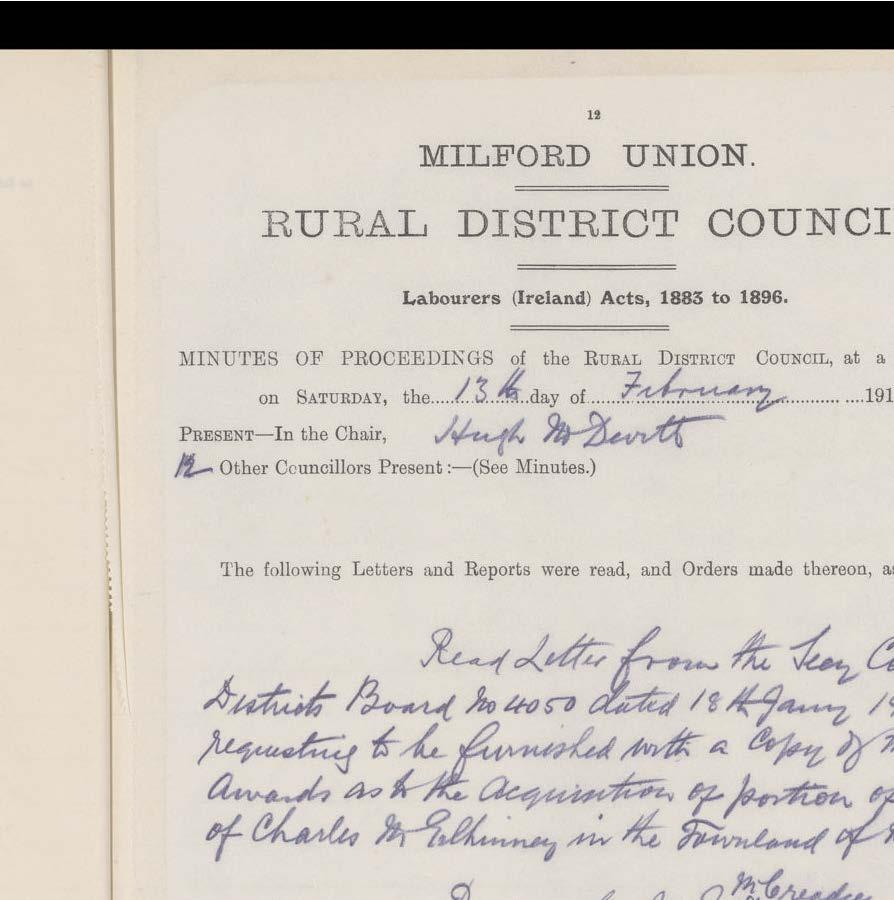 12
MILFORD UNION.
RURAL DISTRICT COUNCI
Labourers (Ireland) Acts, 1883 to 1896.
MINUTES OF PROCEEDINGS of the RURAL DISTRICT COUNCIL, at a
on SATURDAY, the....13th..day of......February..................191
PRESENT—In the Chair, Hugh McDevitt
12 Other Councillors Present:—(See Minutes.)
The following Letters and Reports were read, and Orders made thereon, as
Read Letter from the Secy Co
Districts Board No 4050 dated 18th Jany 19
requesting to be furnished with a copy of
Awards as to the Acquisition of portion of
of Charles McElhinney in the Townland of
McCreadie